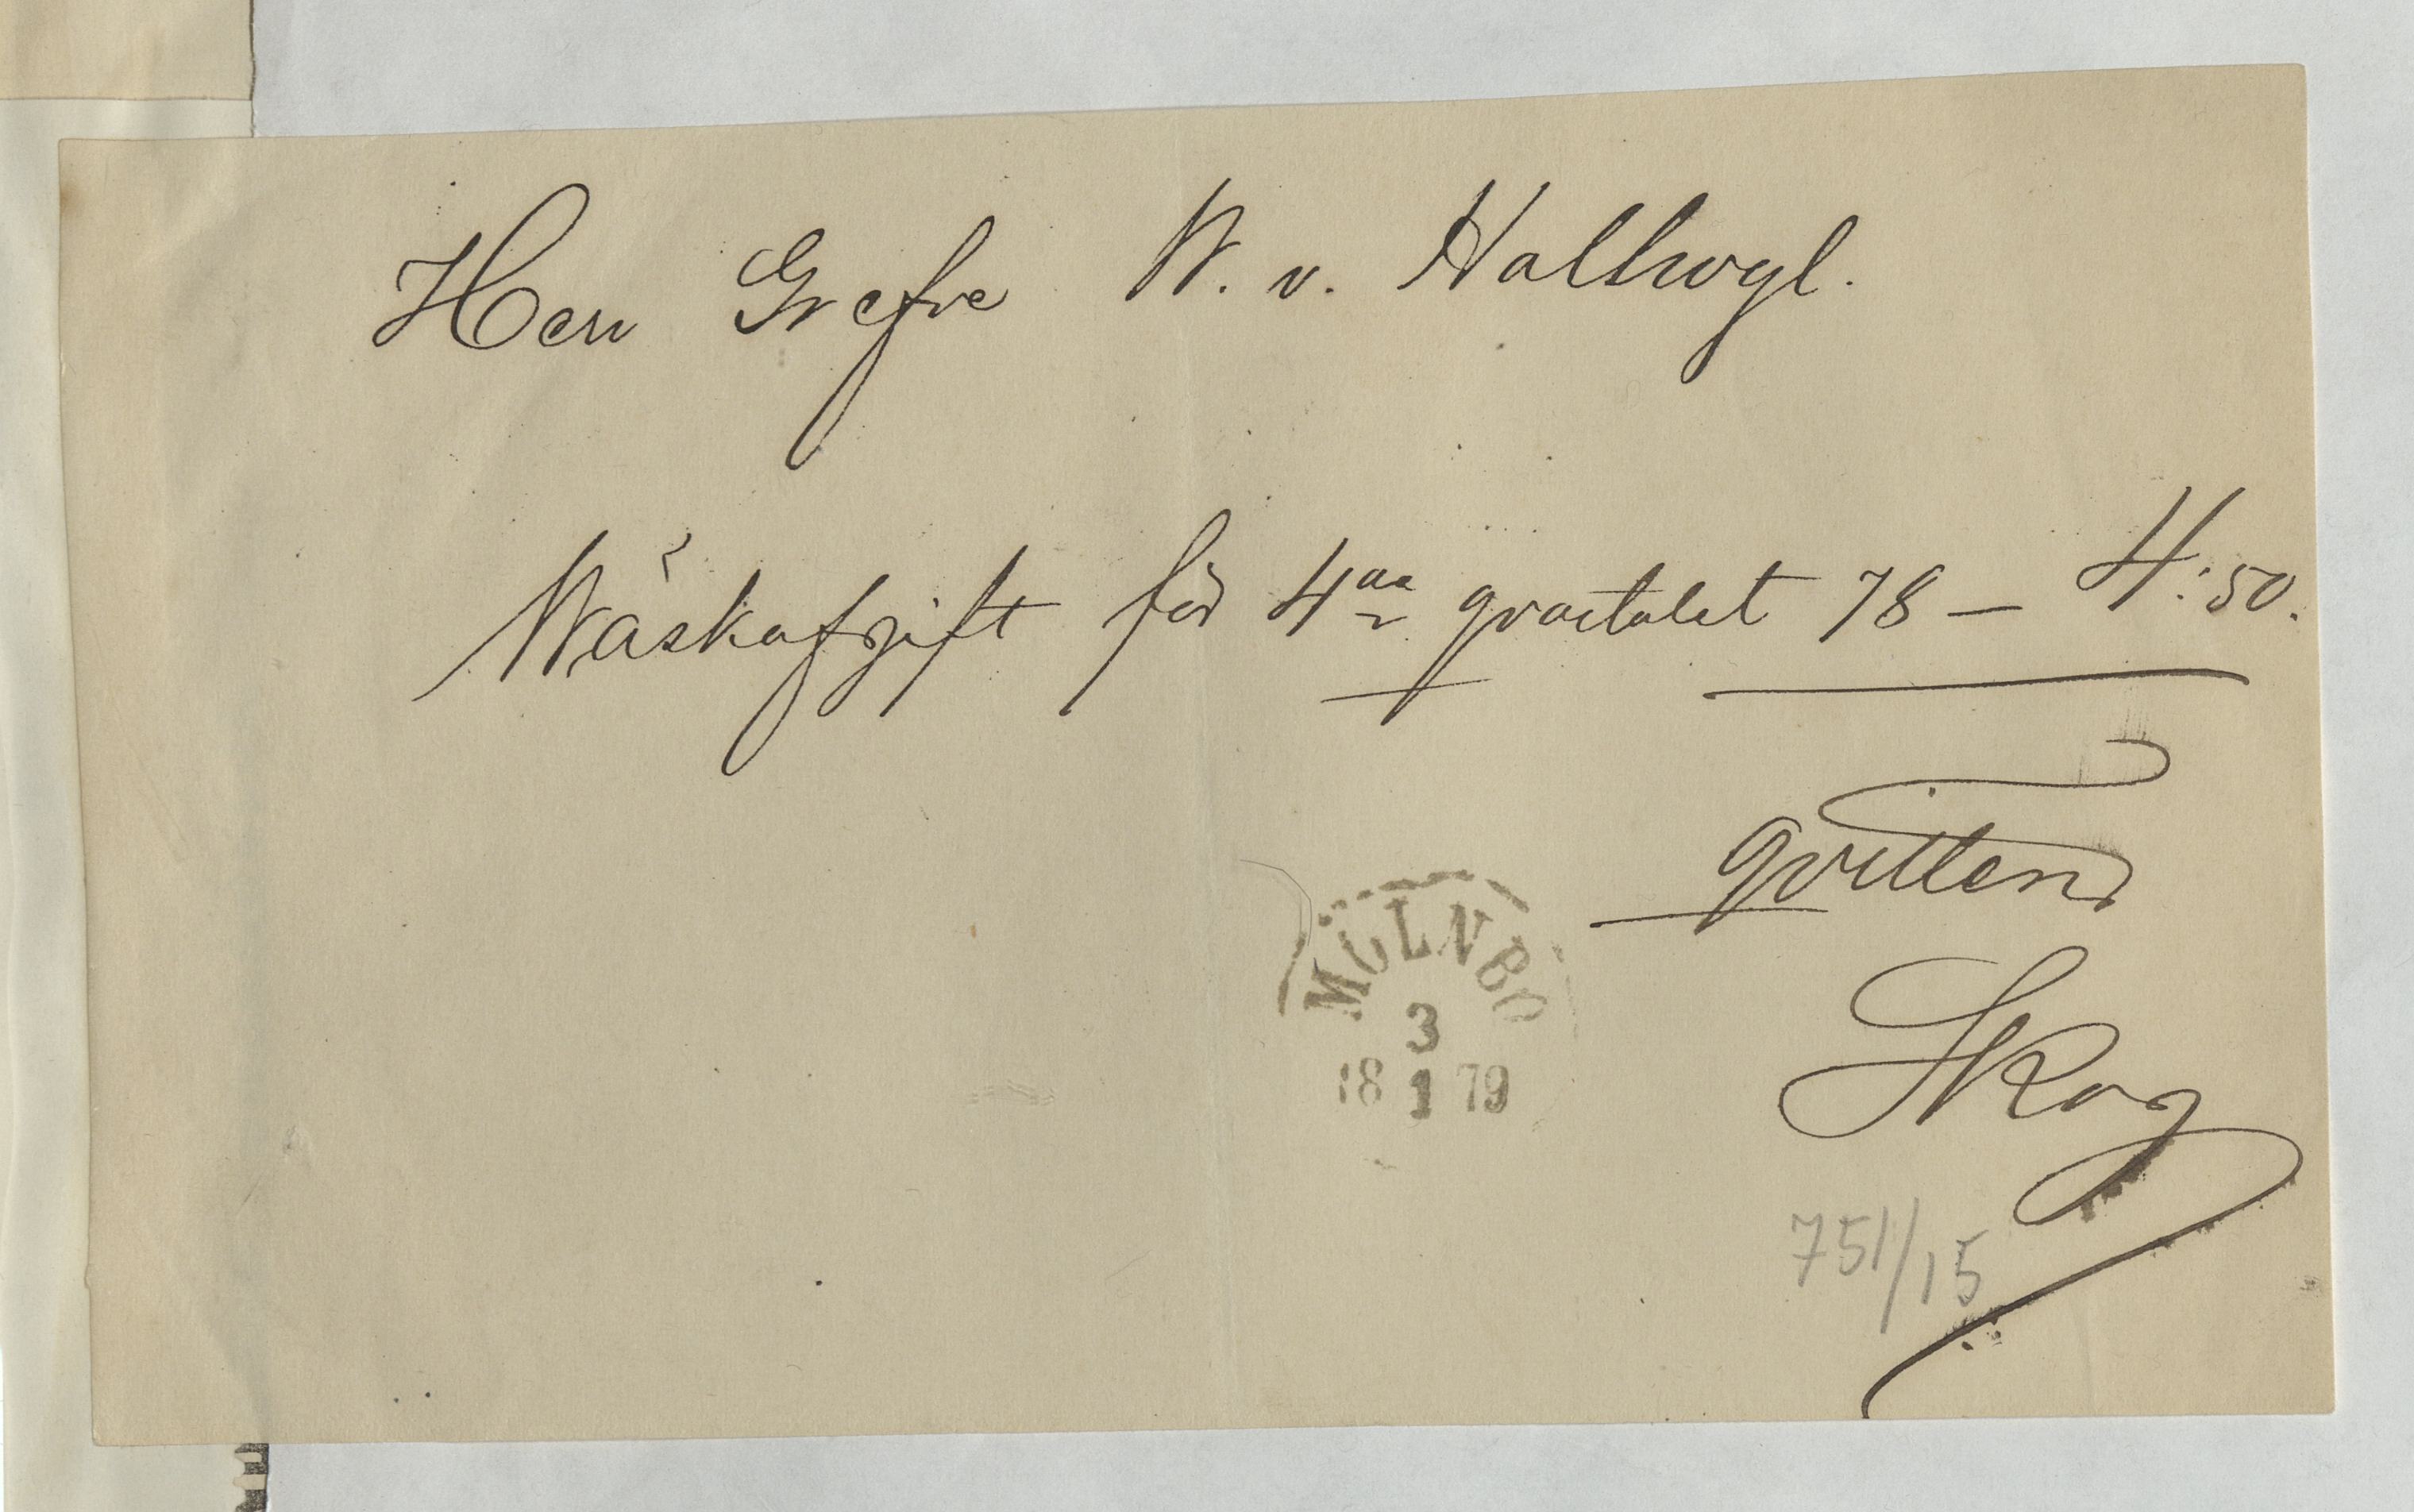 Herr Grefve W. v. Hallwyl.
Wäskafgift för 4de qvartalet 78 — 4:50.
qvitteras
Skog
MÖLNBO
3
18 1 79
751/15